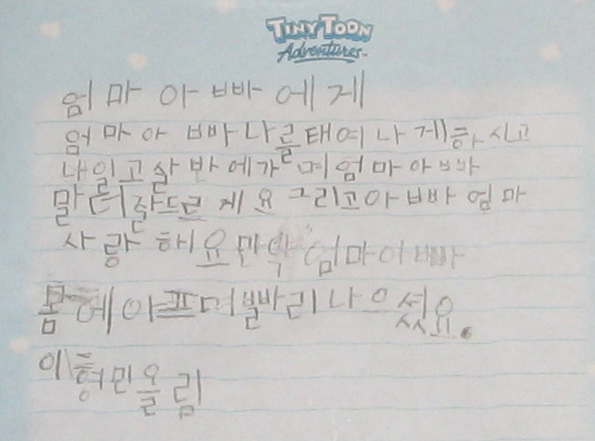 TINY TOON
Adventures
엄마 아빠에게
엄마 아 빠나를태여나게하시고
내일고살반에가며 엄마아빠
말더잘드르게요그리고아빠엄마
사랑해요만약엄마아빠
몸에아프며빨리나으셨요.
이형민올림